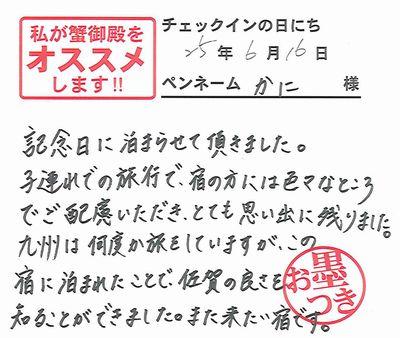 私が蟹御殿を
オススメ
します!!
チェックインの日にち
25年6月16日
ペンネーム かに 様
記念日に泊まらせて頂きました。
子連れでの旅行で、宿の方には色々なところ
でご配慮いただき、とても思い出に残りました。
九州は何度か旅をしていますが、この
宿に泊まれたことで、佐賀の良さを
知ることができました。また来たい宿です。
お墨つき